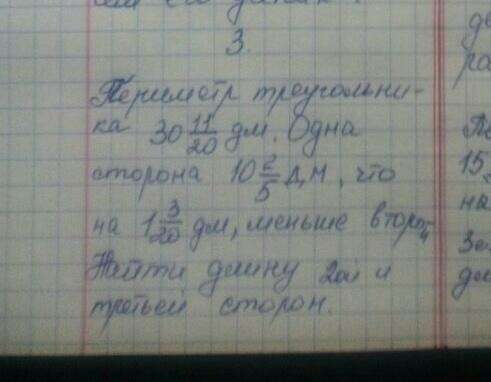 3.
Периметр треугольни-
ка 30 11/20 дм. Одна
сторона 10 2/5 дм, что
на 1 3/20 дм, меньше второй
Найти длину 2ой и
третьей сторон.
де
ра
15
на
дм